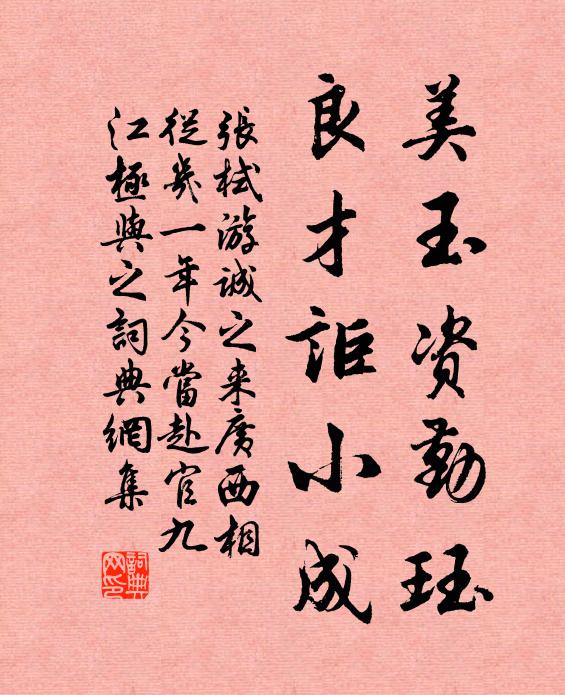 美玉资勤珏
良才詎小成
張栻游誠之来廣西相
從幾一年今當赴官九
江極與之詞典網集
詞典网印